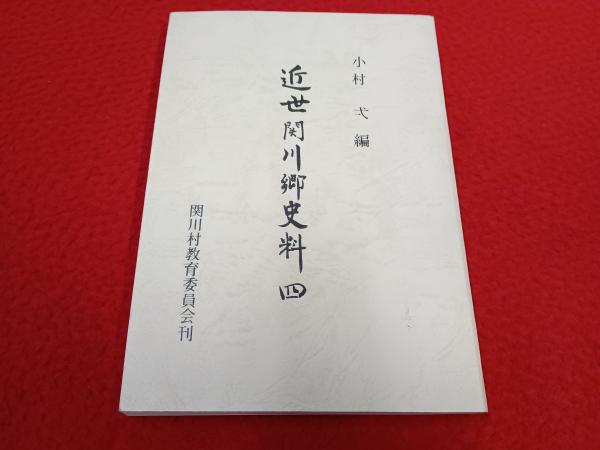 小村 弌 編
近世関川郷史料 四
関川村教育委員会刊